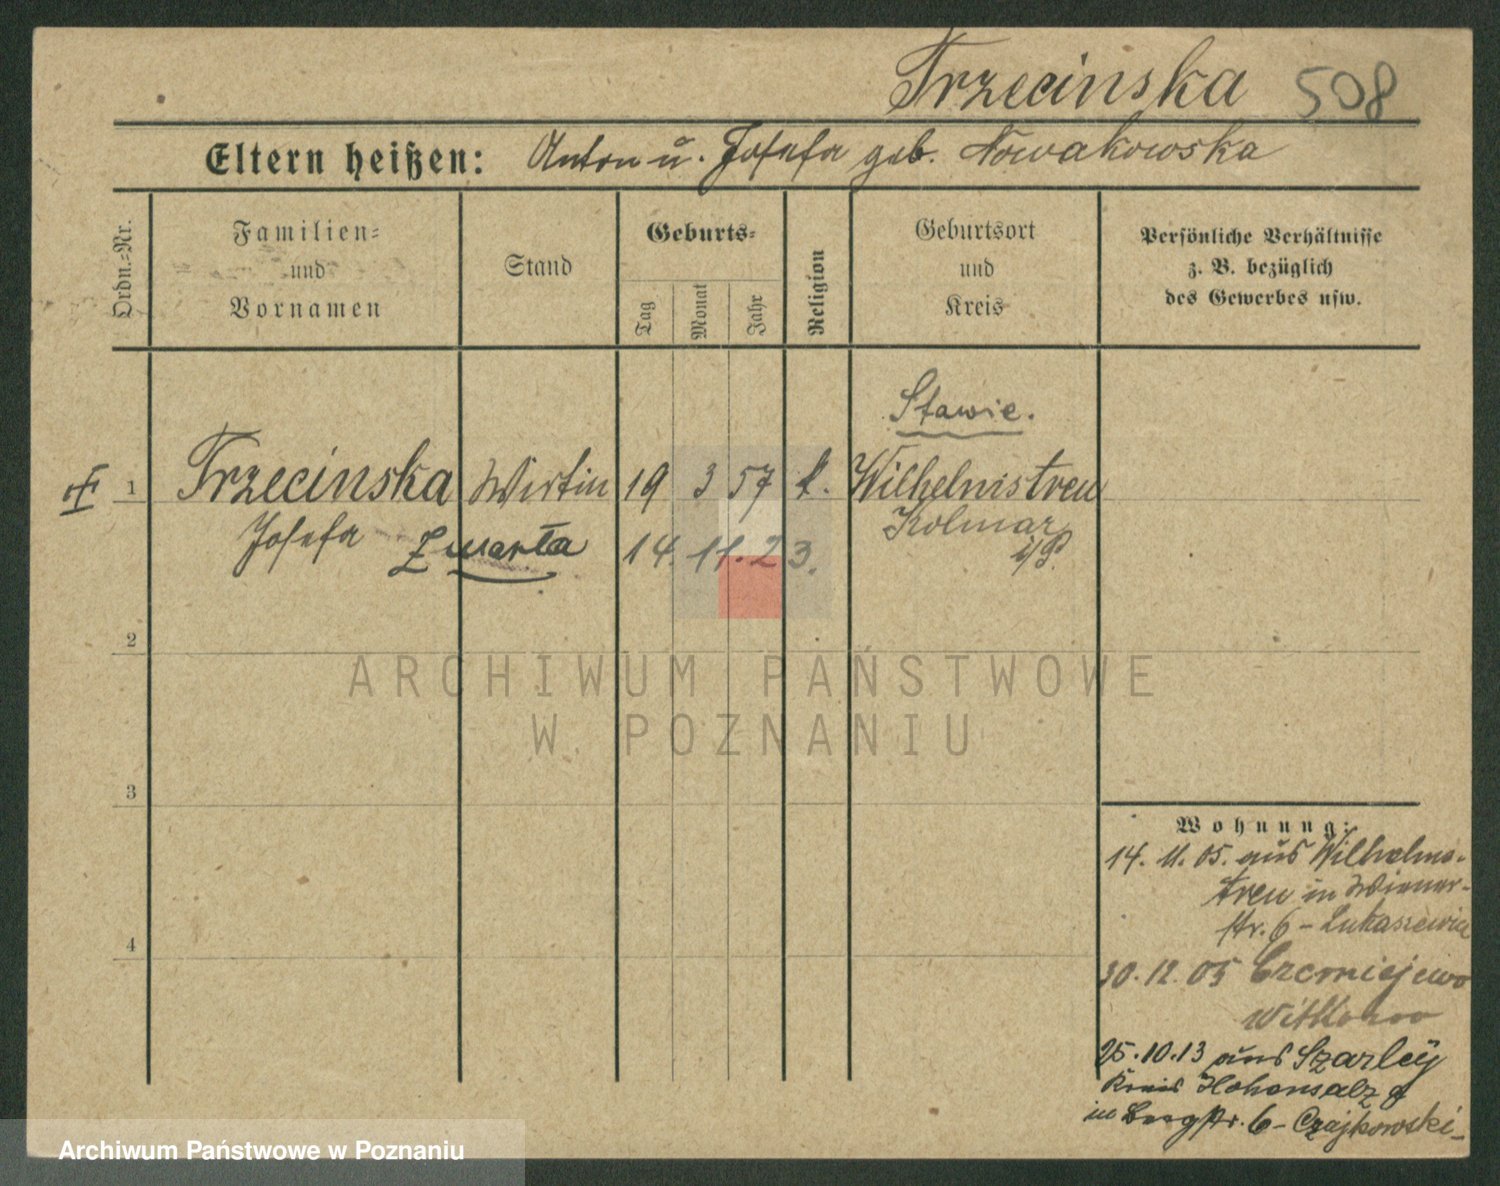 Trzecinska 508
Eltern heißen: Anton u. Josefa geb. Nowakowska
Ordn.-Nr.
Familien-
und
Vornamen
Stand
Geburts-
Tag
Monat
Jahr
Religion
Geburtsort
und
Kreis
Persönliche Verhältnisse
z. B. bezüglich
des Gewerbes usw.
Stawie.
1 Trzecinska Wirtin 19 3 57 k. Wilhelmstreu
Josefa Zmarła 14. 11. 23. Kolmar
i/P.
2
3
4
ARCHIWUM PAŃSTWOWE
W POZNANIU
Wohnung:
14. 11. 05. aus Wilhelms-
treu in Wiener-
str. 6 - Lukaszewicz
30. 12. 05 Czerniejewo
Witkowo
25. 10. 13 aus Szarley
Kreis Hohensalza
in Bergstr. 6 - Czajkowski -
Archiwum Państwowe w Poznaniu